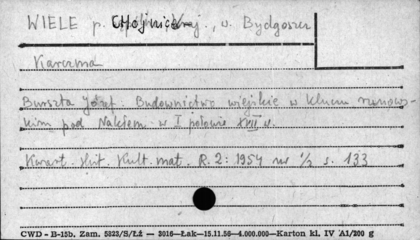 WIELE p. Chojnice, w. Bydgoszcz
Karczma
Burszta Józef. Budownictwo wiejskie w kluczu runows-
kim pod Nakłem w I połowie XVIII w.
Kwart. Hist. Kult. mat. R. 2: 1954 nr 1/2 s. 133
CWD - B-15b. Zam. 5823/S/Łż — 3016—Łak—15.11.56—4.000.000—Karton kl. IV A1/200 g